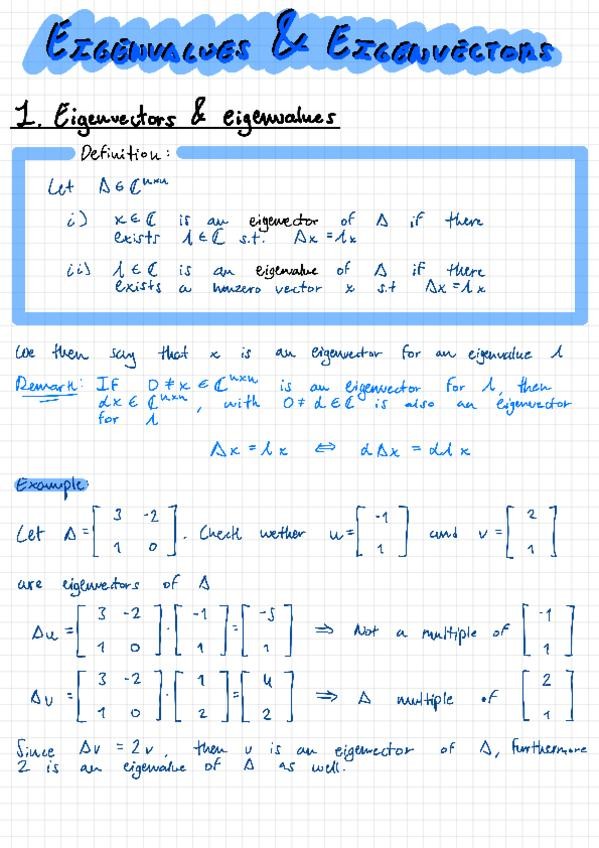 EIGENVALUES & EIGENVECTORS
1. Eigenvectors & eigenvalues
Definition:
Let A ∈ ℂⁿˣⁿ
i) x ∈ ℂ is an eigenvector of A if there
exists λ ∈ ℂ s.t. Ax = λx
ii) λ ∈ ℂ is an eigenvalue of A if there
exists a nonzero vector x s.t Ax = λx
We then say that x is an eigenvector for an eigenvalue λ
Remark: IF 0 ≠ x ∈ ℂⁿˣⁿ is an eigenvector for λ, then
αx ∈ ℂⁿˣⁿ, with 0 ≠ α ∈ ℂ is also an eigenvector
for λ
Ax = λx ⇔ αAx = αλx
Example
Let A = [3 -2; 1 0]. Check wether u = [-1; 1] and v = [2; 1]
are eigenvectors of A
Au = [3 -2; 1 0] · [-1; 1] = [-5; 1] ⇒ Not a multiple of [-1; 1]
Av = [3 -2; 1 0] · [1; 2] = [4; 2] ⇒ A multiple of [2; 1]
Since Av = 2v, then v is an eigenvector of A, furthermore
2 is an eigenvalue of A as well.